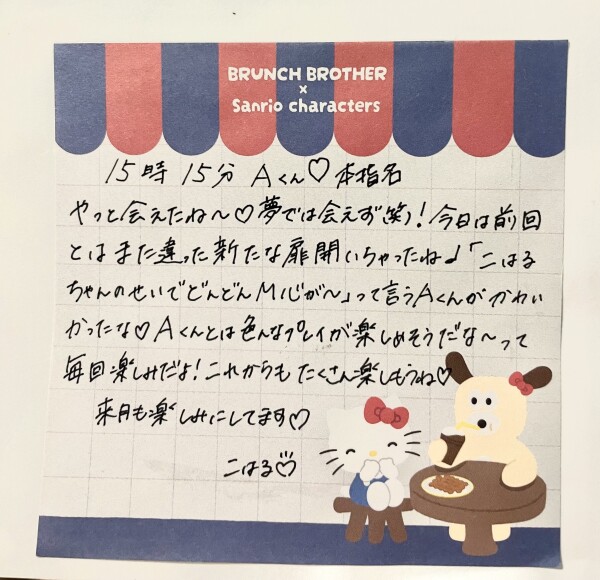 BRUNCH BROTHER
×
Sanrio characters
15時 15分 Aくん♡本指名
やっと会えたね〜♡夢では会えず(笑)!今日は前回
とはまた違った新たな扉開いちゃったね♩「こはる
ちゃんのせいでどんどんM心が〜」って言うAくんがかわい
かったな♡Aくんとは色んなプレイが楽しめそうだな〜って
毎回楽しみだよ!これからもたくさん楽しもうね♡
来月も楽しみにしてます♡
こはる♡